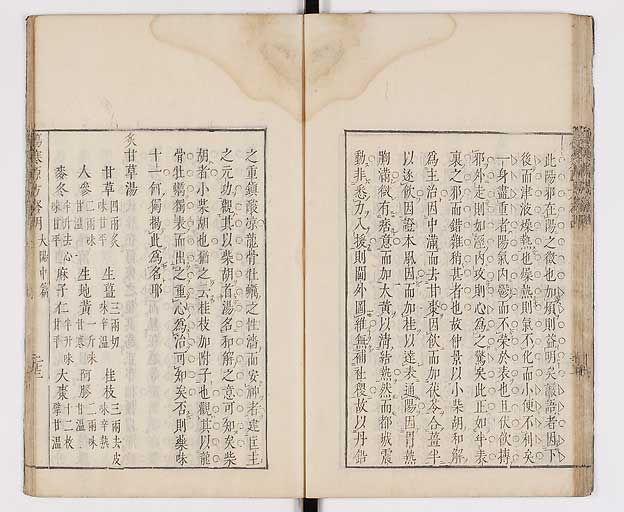 此陽邪在陽之徵也加煩則益明矣譫語者因下
後而津液燥熱也燥熱則氣不化而小便不利矣
一身盡重者陽氣內鬱而不榮於表也且伏飲摶
邪外走則如淫內攻則心為之驚矣此正如半表
裏之邪而錯雜其者也故仲景以小柴胡和解
為主治因中滿而去甘棗因飲而加茯苓合薑半
以逐飲因證本風因而加桂以達表通陽因胃熱
胸滿煩有痰意而加大黃以清結熱然而都城震
動非悉力入援則闘外圖雖無補社稷故以丹鉛
之重鎮歛涼龍骨牡蠣之性濇而安神者建匡王
之元功觀其以柴胡首湯名和解之意可知矣柴
胡者小柴胡也猶之云桂枝加附子也觀其以龍
骨牡蠣獨表而出之重心為治可知矣否則藥味
十一何獨揭此為名耶
炙甘草湯
甘草四兩炙味甘平 生薑三兩切味辛溫 桂枝三兩去皮味辛熱
人參二兩味甘溫 生地黃一斤味甘寒 阿膠二兩味甘溫
麥冬半升去心味甘平 麻子仁半升味甘平 大棗十二枚擘甘溫
傷寒 太陽中篇